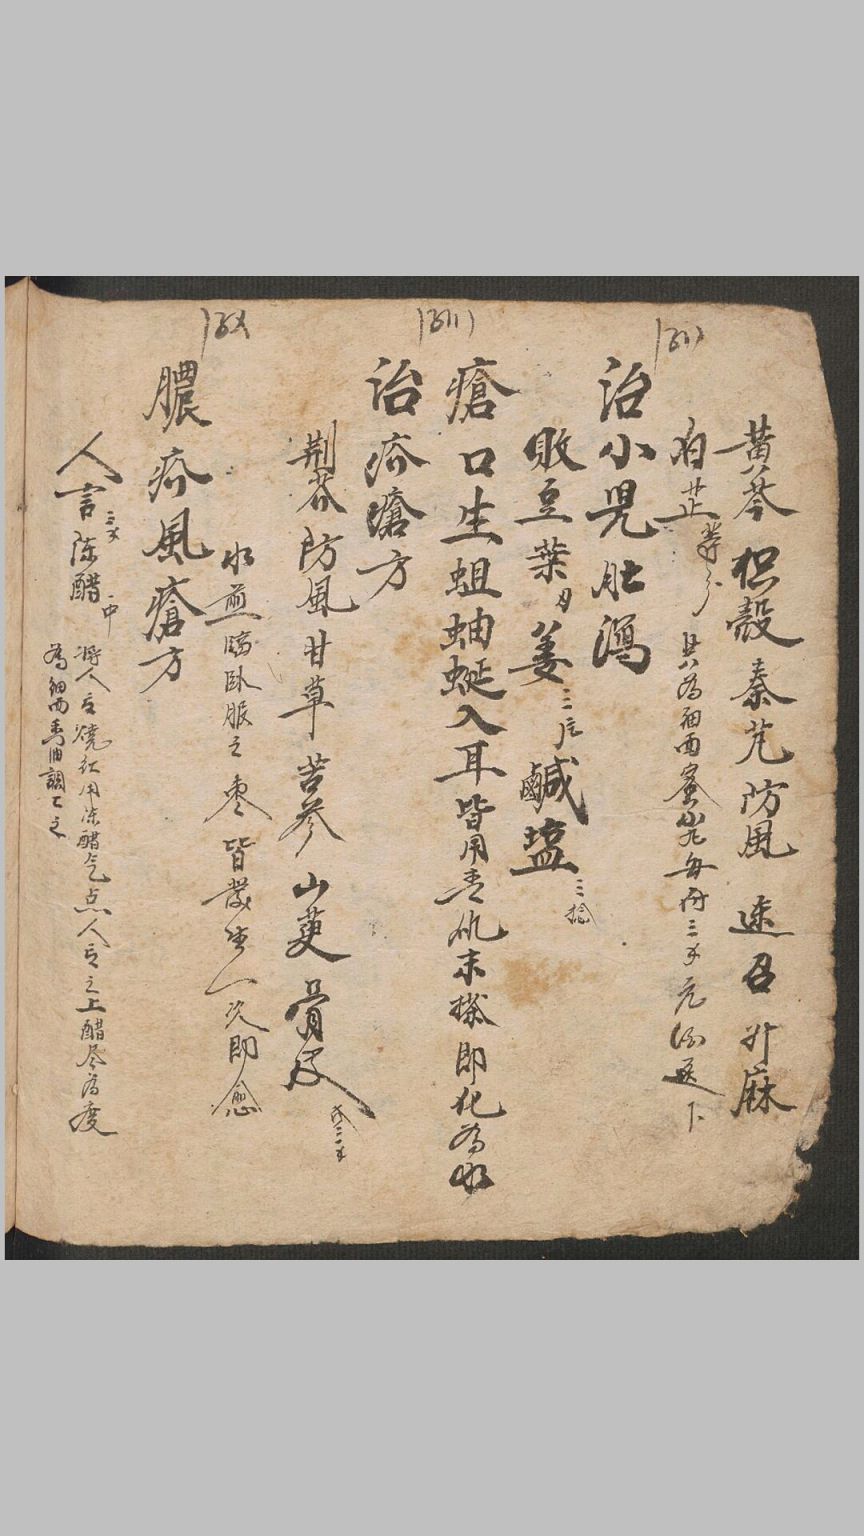 黄芩枳殼秦艽防風連召升麻
白芷等分 共為細面蜜丸每付三多元酒送下
治小児肚瀉
敗豆葉 姜三 鹹塩三捻
瘡口生蛆蚰蜒入耳皆用青 末搽即化為水
治疥瘡方
荆芥防風甘草苦參山萸骨皮 三
水煎臨臥服之棗皆發 一次即愈
膿疥風瘡方
人言三 陈醋一中
将人言燒红用陈醋 点人言之上醋尽為度
為細面香油調 之